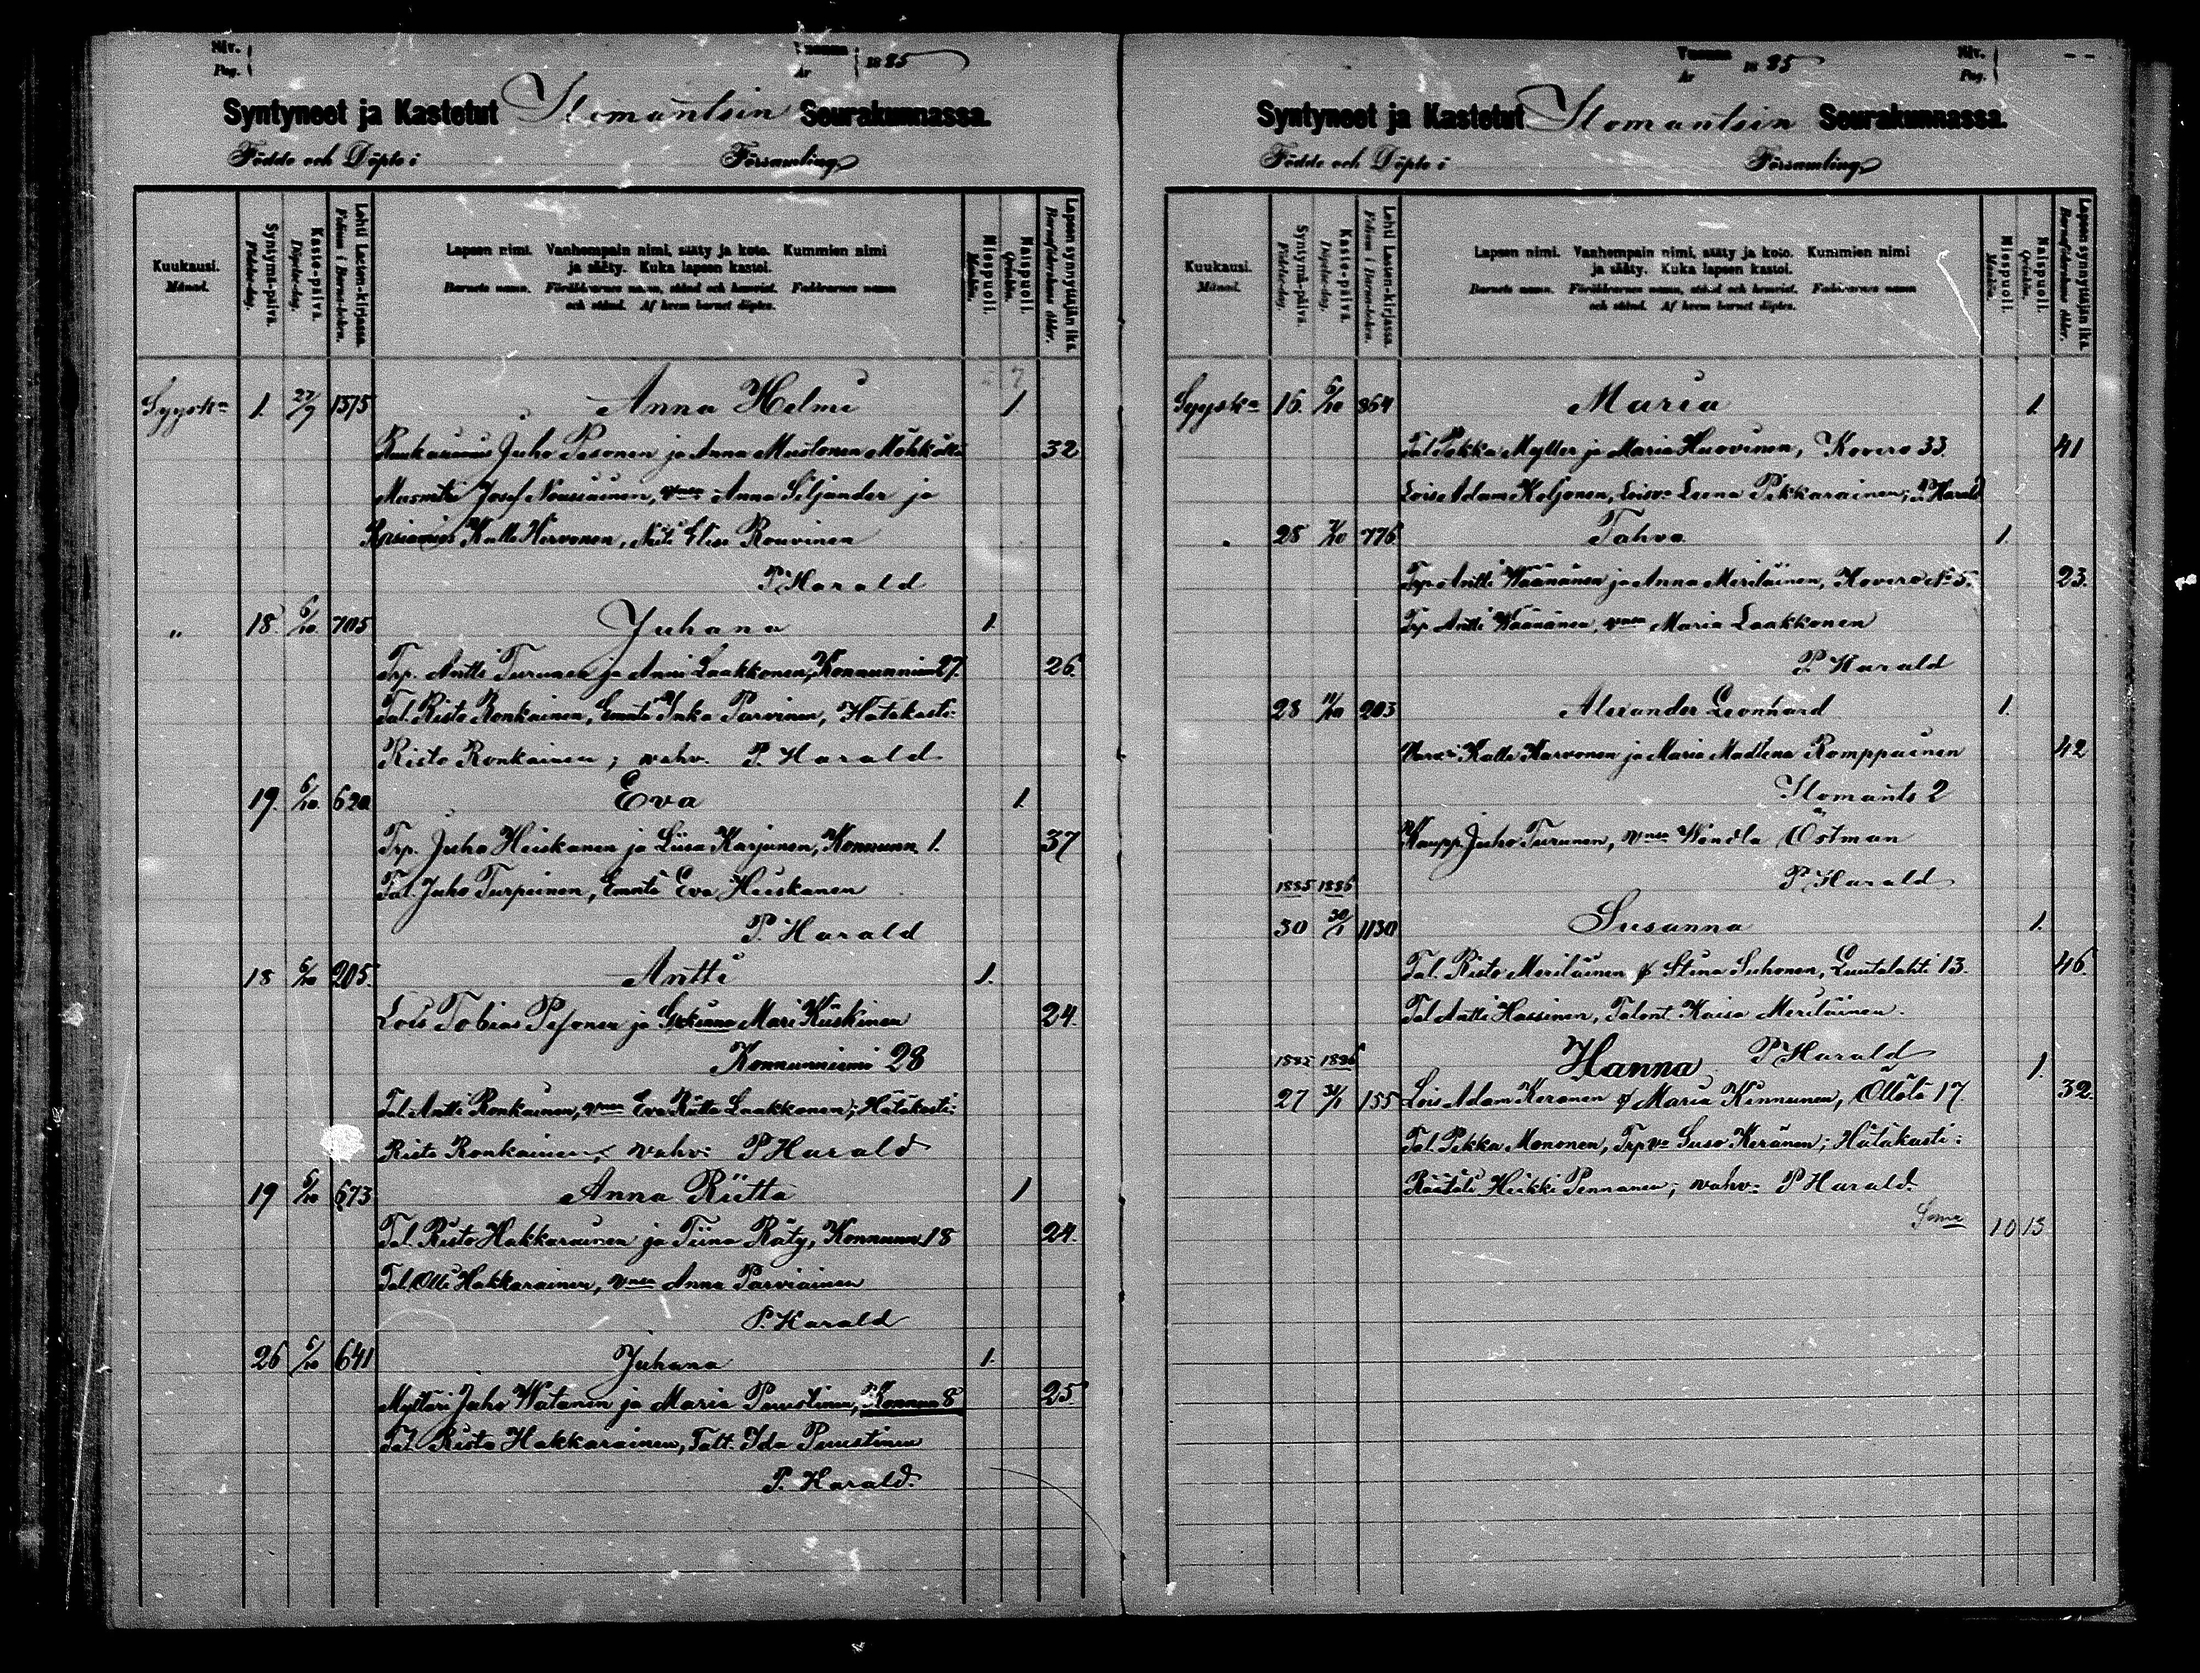 Siv.
Pag.
Vuonna
År
1885
Syntyneet ja Kastetut Ilomantsin Seurakunnassa.
Födde och Döpte i Församling
Kuukausi.
Månad.
Syntymä-päivä.
Födelse-dag.
Kaste-päivä.
Döpelse-dag.
Lehti Lasten-kirjassa.
Folium i Barna-boken.
Lapsen nimi. Vanhempain nimi, sääty ja koto. Kummien nimi
ja sääty. Kuka lapsen kastoi.
Barnets namn. Föräldrarnes namn, stånd och hemvist. Faddrarnes namn
och stånd. Af hvem barnet döptes.
Miespuoli.
Mankön.
Naispuoli.
Qvinkön.
Lapsen synnyttäjän ikä.
Barnaföderskans ålder.
Syysk. 1. 27/9 1575 Anna Helmi 1
Juho Pesonen ja Anna Mustonen Möhkö 32
Josef Nousiainen, vmsa Anna Siljander ja
Kalle Hirvonen, Neiti Elise Rouvinen
P. Harald
" 18. 6/10 705 Juhana 1.
Trp. Antti Turunen ja Anni Laakkonen, Konnunniemi 27. 26.
Tal. Risto Ronkainen, Emäntä Inka Parvinen, Hätäkasti:
Risto Ronkainen; vahv. P. Harald
19. 6/10 620 Eva 1.
Trp. Juho Heiskanen ja Liisa Karjunen, Konnunn. 1. 37
Tal. Juho Turpeinen, Emäntä Eva Heiskanen
P. Harald
18 6/10 205. Antti 1.
Lois Tobias Pesonen ja Mari Kiiskinen 24.
Konnunniemi 28
Tal. Antti Ronkainen, vmsa Eva Riitta Laakkonen; Hätäkasti:
Risto Ronkainen; vahv: P Harald
19 6/10 673 Anna Riitta 1
Tal. Risto Hakkarainen ja Tiina Räty, Konnunn. 18 24.
Tal. Olli Hakkarainen, vmsa Anna Parviainen
P. Harald
26 6/10 641 Juhana 1.
Mylläri Juho Watanen ja Maria Puustinen, Konnun 8 25
Tal. Risto Hakkarainen, Talt. Ida Puustinen
P. Harald.
Vuonna
År
1885
Siv.
Pag.
Syntyneet ja Kastetut Ilomantsin Seurakunnassa.
Födde och Döpte i Församling
Kuukausi.
Månad.
Syntymä-päivä.
Födelse-dag.
Kaste-päivä.
Döpelse-dag.
Lehti Lasten-kirjassa.
Folium i Barna-boken.
Lapsen nimi. Vanhempain nimi, sääty ja koto. Kummien nimi
ja sääty. Kuka lapsen kastoi.
Barnets namn. Föräldrarnes namn, stånd och hemvist. Faddrarnes namn
och stånd. Af hvem barnet döptes.
Miespuoli.
Mankön.
Naispuoli.
Qvinkön.
Lapsen synnyttäjän ikä.
Barnaföderskans ålder.
Syysk. 16. 6/10 864 Maria 1.
Tal. Pekka Myller ja Maria Huovinen, Kovero 33. 41
Lois Adam Keljonen, Loisv: Leena Pikkarainen; P. Harald
" 28 7/10 776 Tahvo 1.
Trp. Antti Wäänänen ja Anna Meriläinen, Kovero No 5. 23.
Trp. Antti Wäänänen, vmsa Maria Laakkonen
P. Harald
28 11/10 203 Alexander Leonhard 1.
Kalle Karvonen ja Maria Madlena Romppainen 42
Ilomants 2
Kaupp. Juho Turunen, vmsa Wendla Östman
P. Harald
1885 1886
30 30/1 1130 Susanna 1.
Tal. Risto Meriläinen & Stina Suhonen, Luutalahti 13. 46.
Tal Antti Hassinen, Talont. Kaisa Meriläinen.
P Harald
1885 1886 Hanna 1.
27 31/1 155 Lois Adam Keronen & Maria Kinnunen, Ollola 17. 32.
Tal. Pekka Mononen, Trpv: Suso Keränen; Hätäkasti:
Räätäli Heikki Pennanen; vahv: P Harald.
Soma 10 13